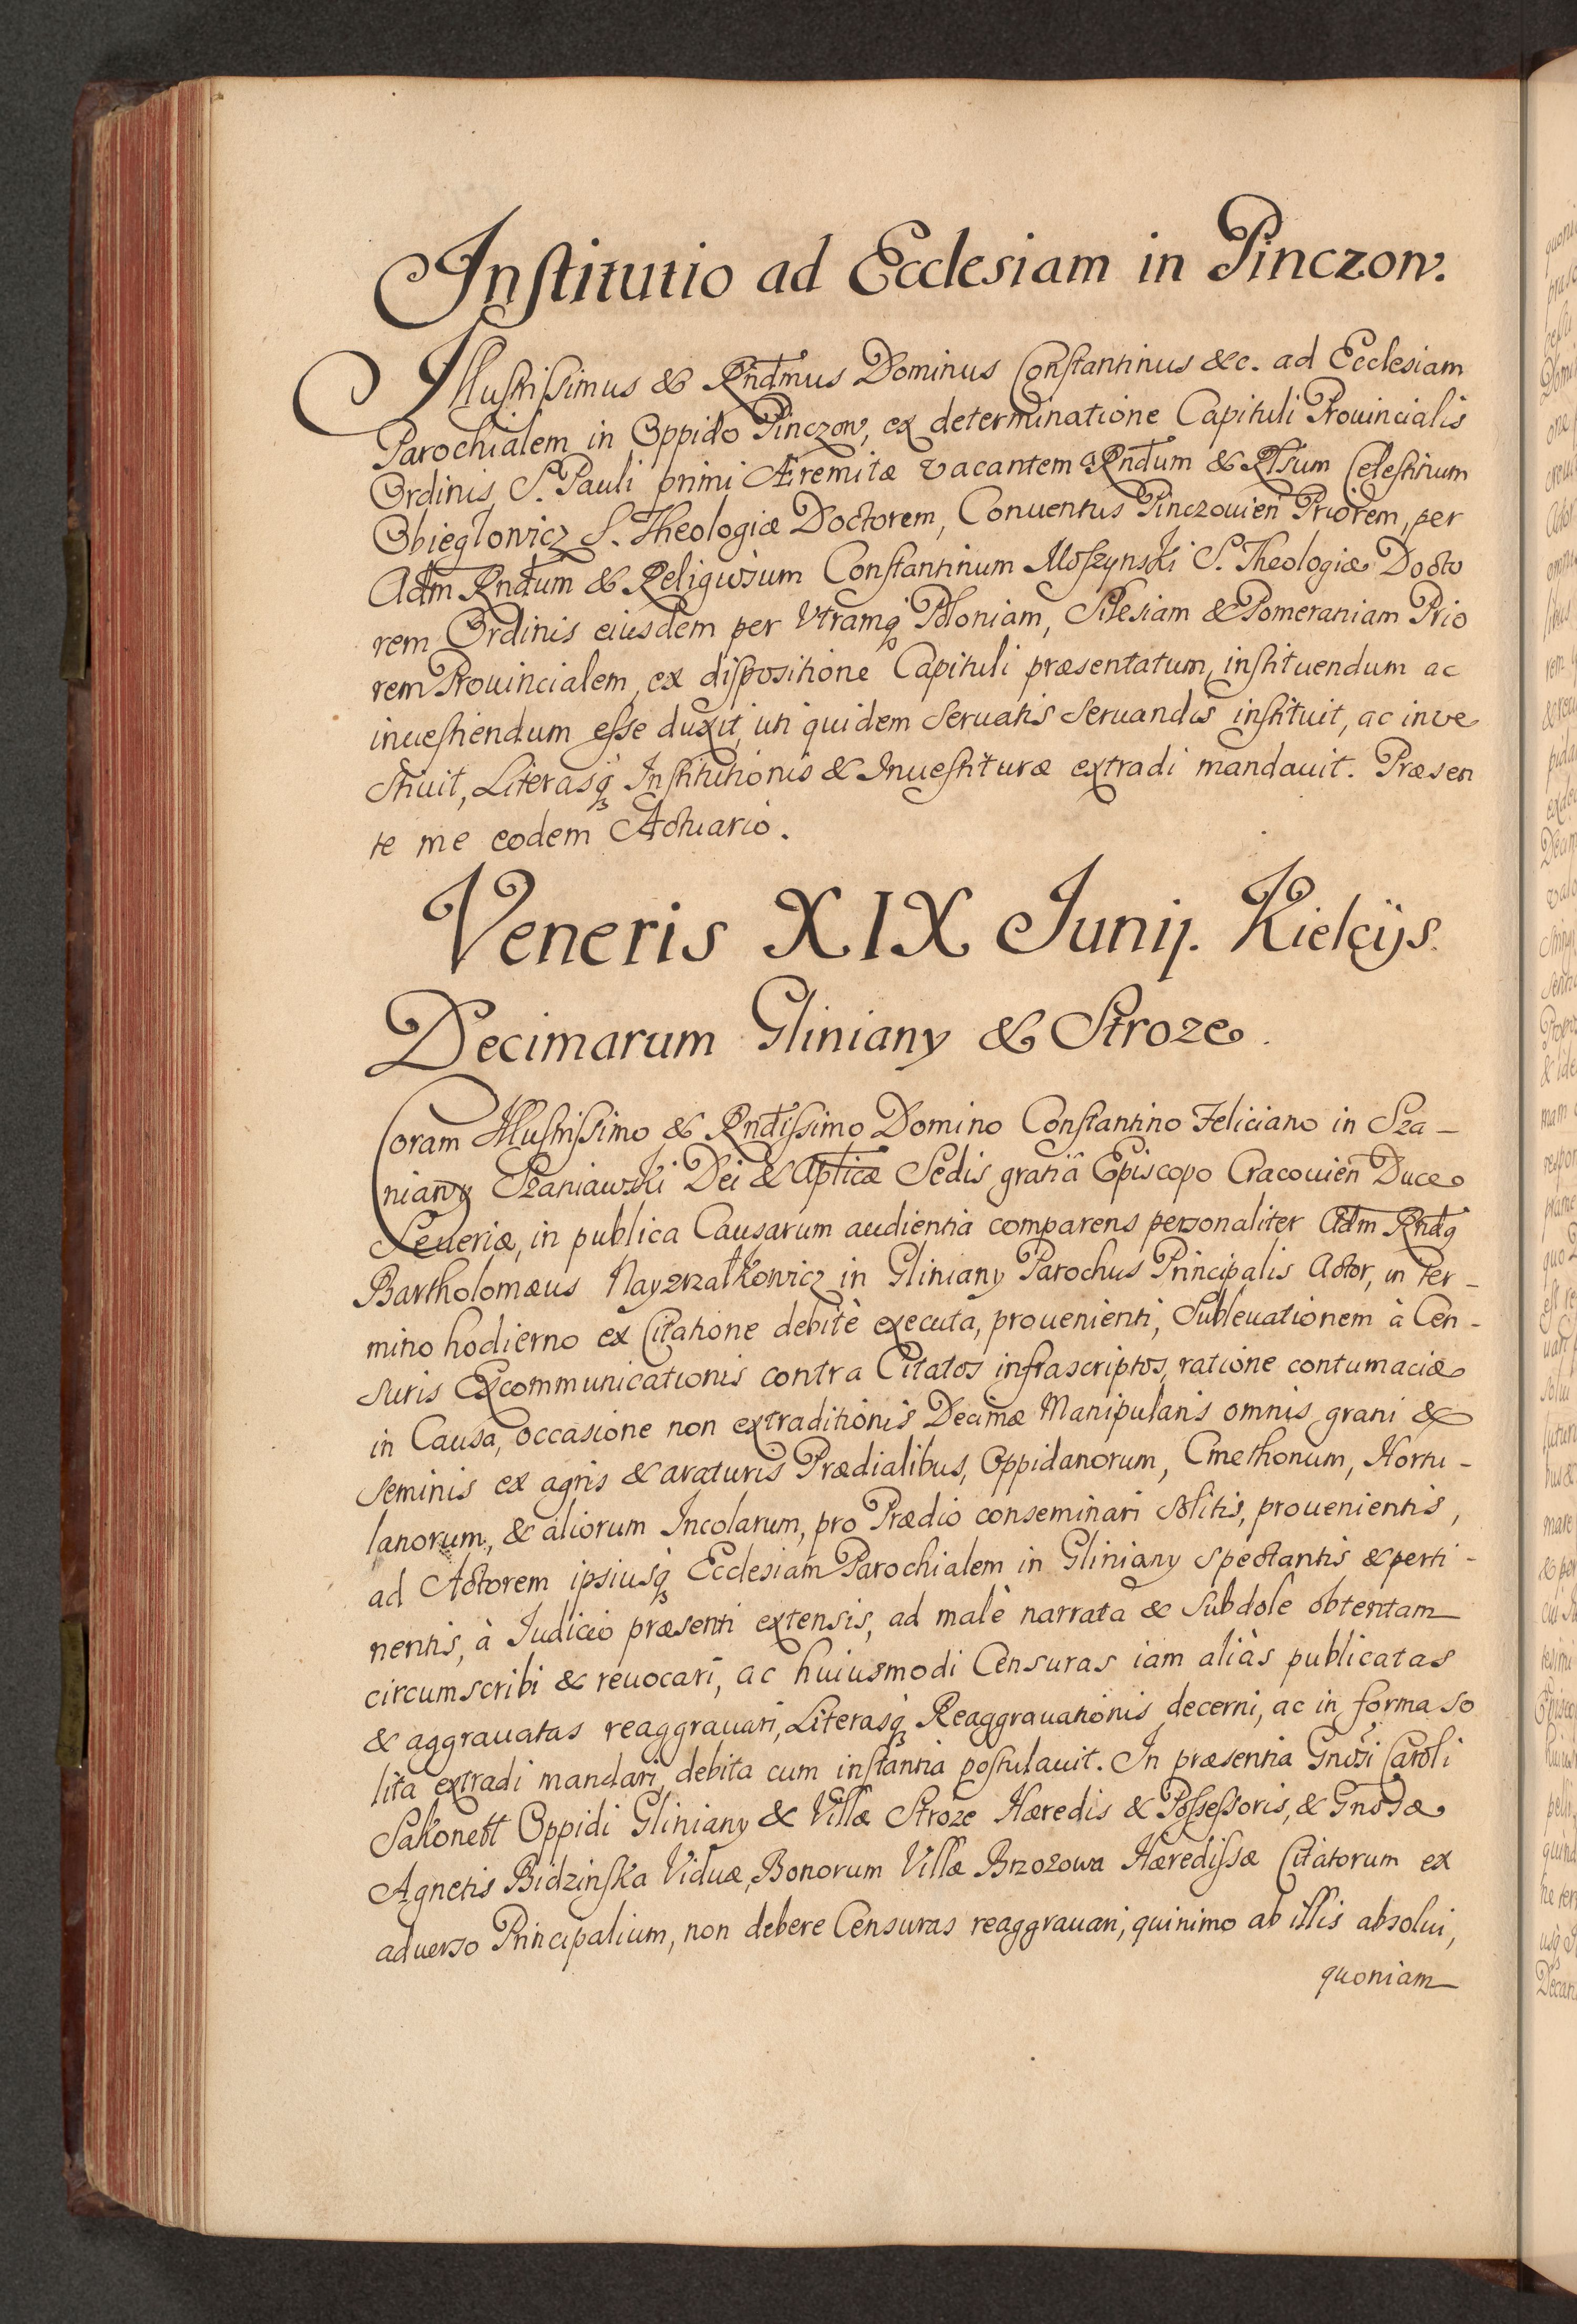 Institutio ad Ecclesiam in Pinczow.
Illustrissimus & Rndmus Dominus Constantinus &c. ad Ecclesiam
Parochialem in Oppido Pinczow, ex determinatione Capituli Prouincialis
Ordinis S. Pauli primi Æremitæ vacantem Rndum & Rlsum Celestinum
Obieglowicz S. Theologiæ Doctorem, Conuentus Pinczouien Priorem, per
Adm Rndum & Religiosum Constantinum Moszynski S. Theologiæ Docto
rem Ordinis eiusdem per Utramq Poloniam, Silesiam & Pomeraniam Prio
rem Prouincialem, ex dispositione Capituli præsentatum, instituendum ac
inuestiendum esse duxit, uti quidem seruatis seruandis instituit, ac inve
stiuit, Literasq Institutionis & Inuestituræ extradi mandauit. Præsen
te me eodem Actuario.
Veneris XIX Junij. Kielcijs.
Decimarum Gliniany & Stroze.
Coram Illustrissimo & Rndissimo Domino Constantino Feliciano in Sza-
niawy Szaniawski Dei & Aplicæ Sedis gratiâ Episcopo Cracouien Duce
Seueriæ, in publica Causarum audientia comparens personaliter Adm Rndq
Bartholomæus Nayzrzałkowicz in Gliniany Parochus Principalis Actor, in ter-
mino hodierno ex Citatione debitè executa, prouenienti, Subleuationem à Cen-
suris Excommunicationis contra Citatos infrascriptos, ratione contumaciæ
in Causa, occasione non extraditionis Decimæ Manipularis omnis grani &
seminis ex agris & araturis Prædialibus, Oppidanorum, Cmethonum, Hortu-
lanorum, & aliorum Incolarum, pro Prædio conseminari solitis, prouenientis,
ad Actorem ipsiusq Ecclesiam Parochialem in Gliniany spectantis & perti-
nentis, à Iudicio præsenti extensis, ad malè narrata & subdolè obtentam
circumscribi & reuocari, ac huiusmodi Censuras iam aliàs publicatas
& aggrauatas reaggrauari, Literasq Reaggrauationis decerni, ac in forma so
lita extradi mandari, debita cum instantia postulauit. In præsentia Gnosi Caroli
Oppidi Gliniany & Villæ Stroze Hæredis & Possessoris, & Gnosæ
Agnetis Bidzinska Viduæ, Bonorum Villæ Brzozowa Hæredissæ Citatorum ex
aduerso Principalium, non debere Censuras reaggrauari, quinimo ab illis absolui,
quoniam